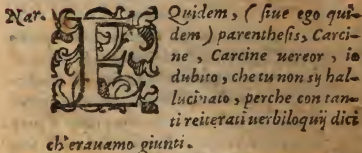 Nar. EQuidem, (ſiue ego qui-
dem) parenthesis, Carci-
ne, Carcine uereor, io
dubito, che tu non sij hal-
lucinato, perche con tan-
ti reiterati uerbiloquij dici
ch'erauamo giunti.